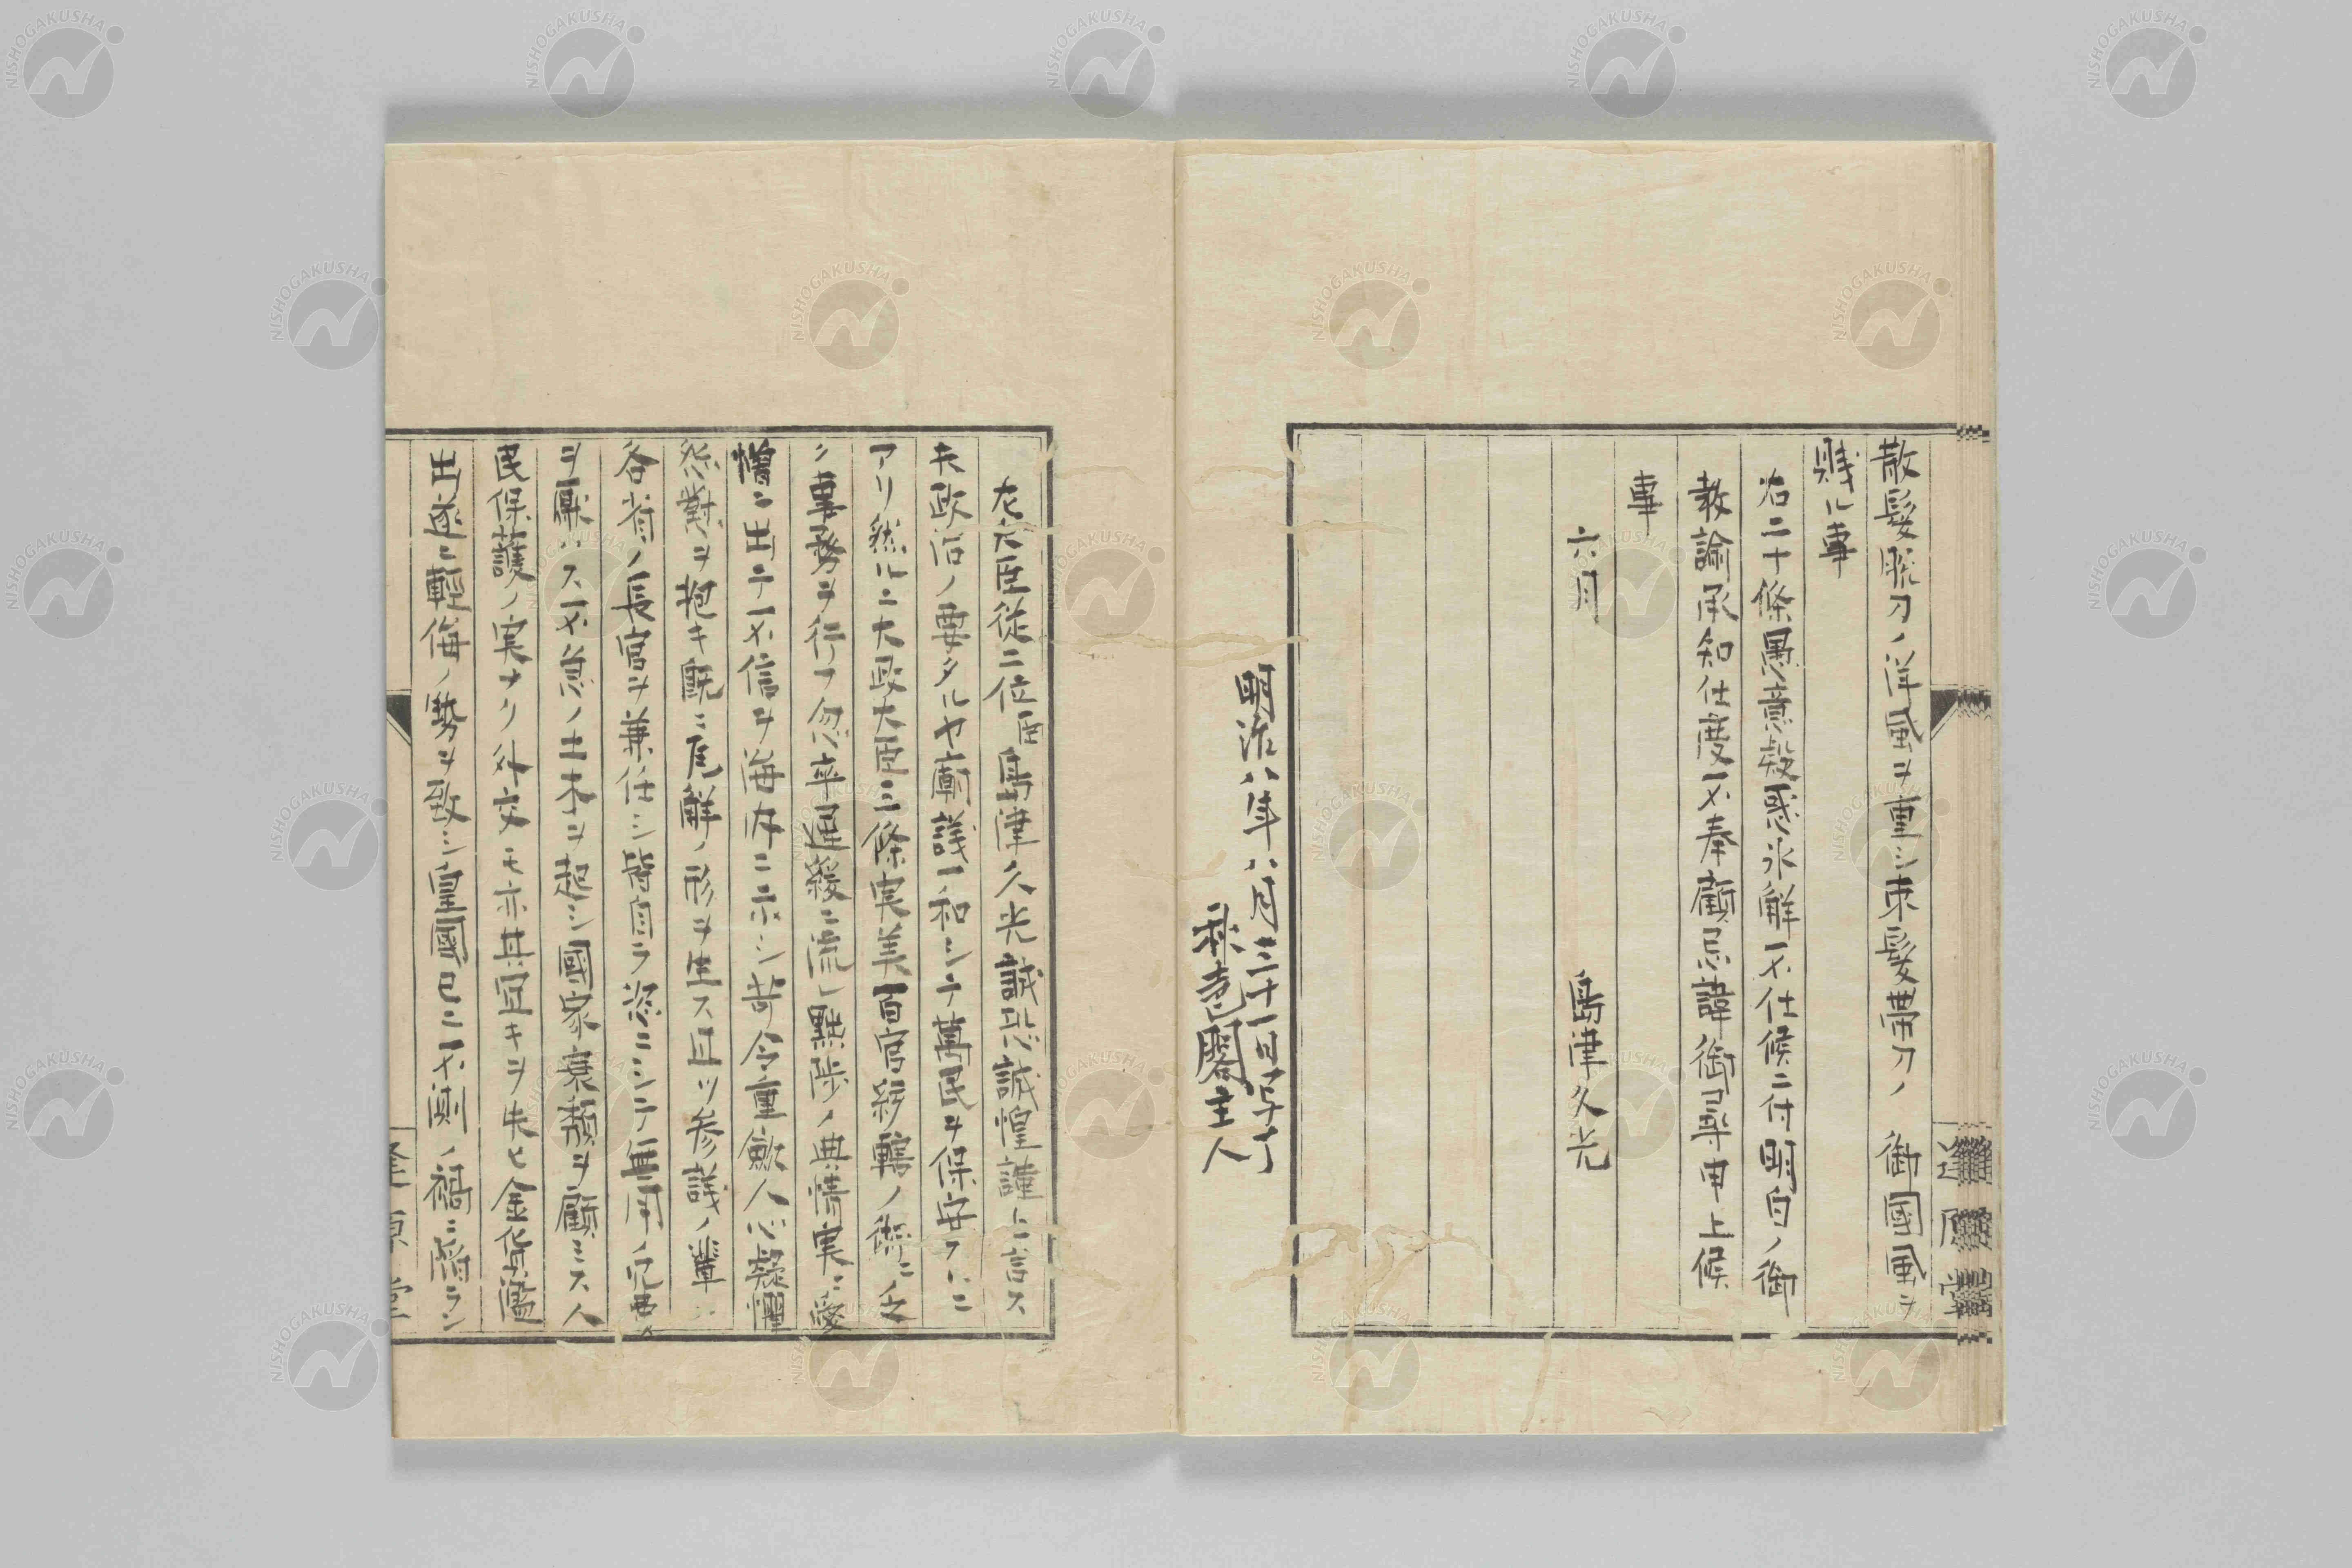 散髮脫刀ノ洋風ヲ重シ束髮帶刀ノ 御國風ヲ
賎ル事
右二十條愚意疑惑氷解不仕候ニ付明白ノ御
教諭承知仕度不奉顧忌諱御尋申上候
事
六月 島津久光
明治八年八月三十一日寫了
秋 閣主人
左大臣從二位臣島津久光誠恐誠惶謹上言ス
夫政治ノ要タルヤ廟議一和シテ萬民ヲ保安スルニ
アリ然ルニ太政大臣三條実美百官綜轄ノ術ニ乏
シク事務ヲ行フ忽卒遲緩ニ流レ黜陟ノ典情実ニ愛
憎ニ出テ不信ヲ海内ニ示シ苛令重歛人心疑懼
怨懟ヲ抱キ既ニ瓦解ノ形ヲ生ス且ツ参議ノ輩ハ
各省ノ長官ヲ兼任シ皆自ラ恣ニシテ無用ノ冗費
ヲ厭ハス不急ノ土木ヲ起シ國家衰頽ヲ顧ミス人
民保護ノ実ナリ外交モ亦其宜キヲ失ヒ金貨濫
出遂ニ輕侮ノ勢ヲ致シ皇國已ニ不測ノ禍ニ陷ラン